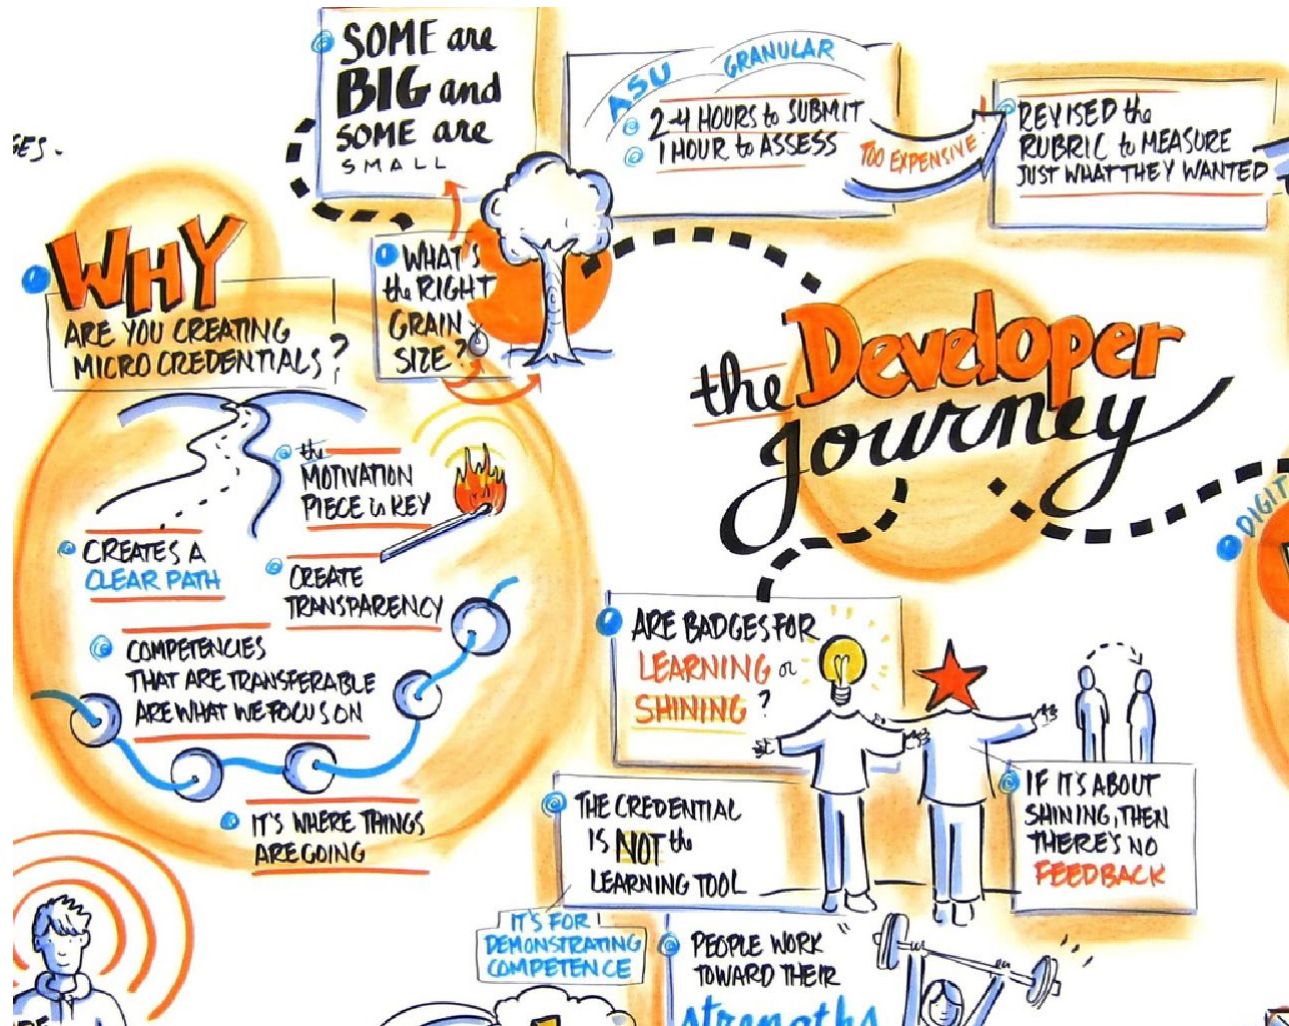 GES.
SOME are
BIG and
SOME are
SMALL
ASU GRANULAR
2-4 HOURS to SUBMIT
1 HOUR to ASSESS
TOO EXPENSIVE
REVISED the
RUBRIC to MEASURE
JUST WHAT THEY WANTED
WHY
ARE YOU CREATING
MICRO CREDENTIALS?
WHAT'S
the RIGHT
GRAIN
SIZE?
the Developer
Journey
the
MOTIVATION
PIECE is KEY
CREATES A
CLEAR PATH
CREATE
TRANSPARENCY
COMPETENCIES
THAT ARE TRANSFERABLE
ARE WHAT WE FOCUS ON
IT'S WHERE THINGS
ARE GOING
DIGIT
ARE BADGES FOR
LEARNING or
SHINING?
THE CREDENTIAL
IS NOT the
LEARNING TOOL
IF IT'S ABOUT
SHINING, THEN
THERE'S NO
FEEDBACK
IT'S FOR
DEMONSTRATING
COMPETENCE
PEOPLE WORK
TOWARD THEIR
strengths